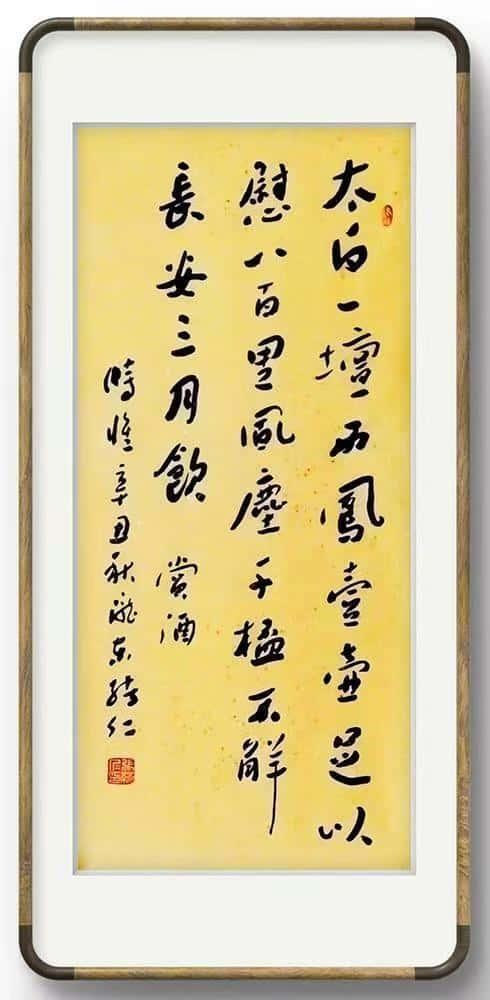 太白一壇西鳳壹壺足以
慰八百里風塵千榼不解
長安三月飲 賞酒
時惟辛丑秋隴東仁